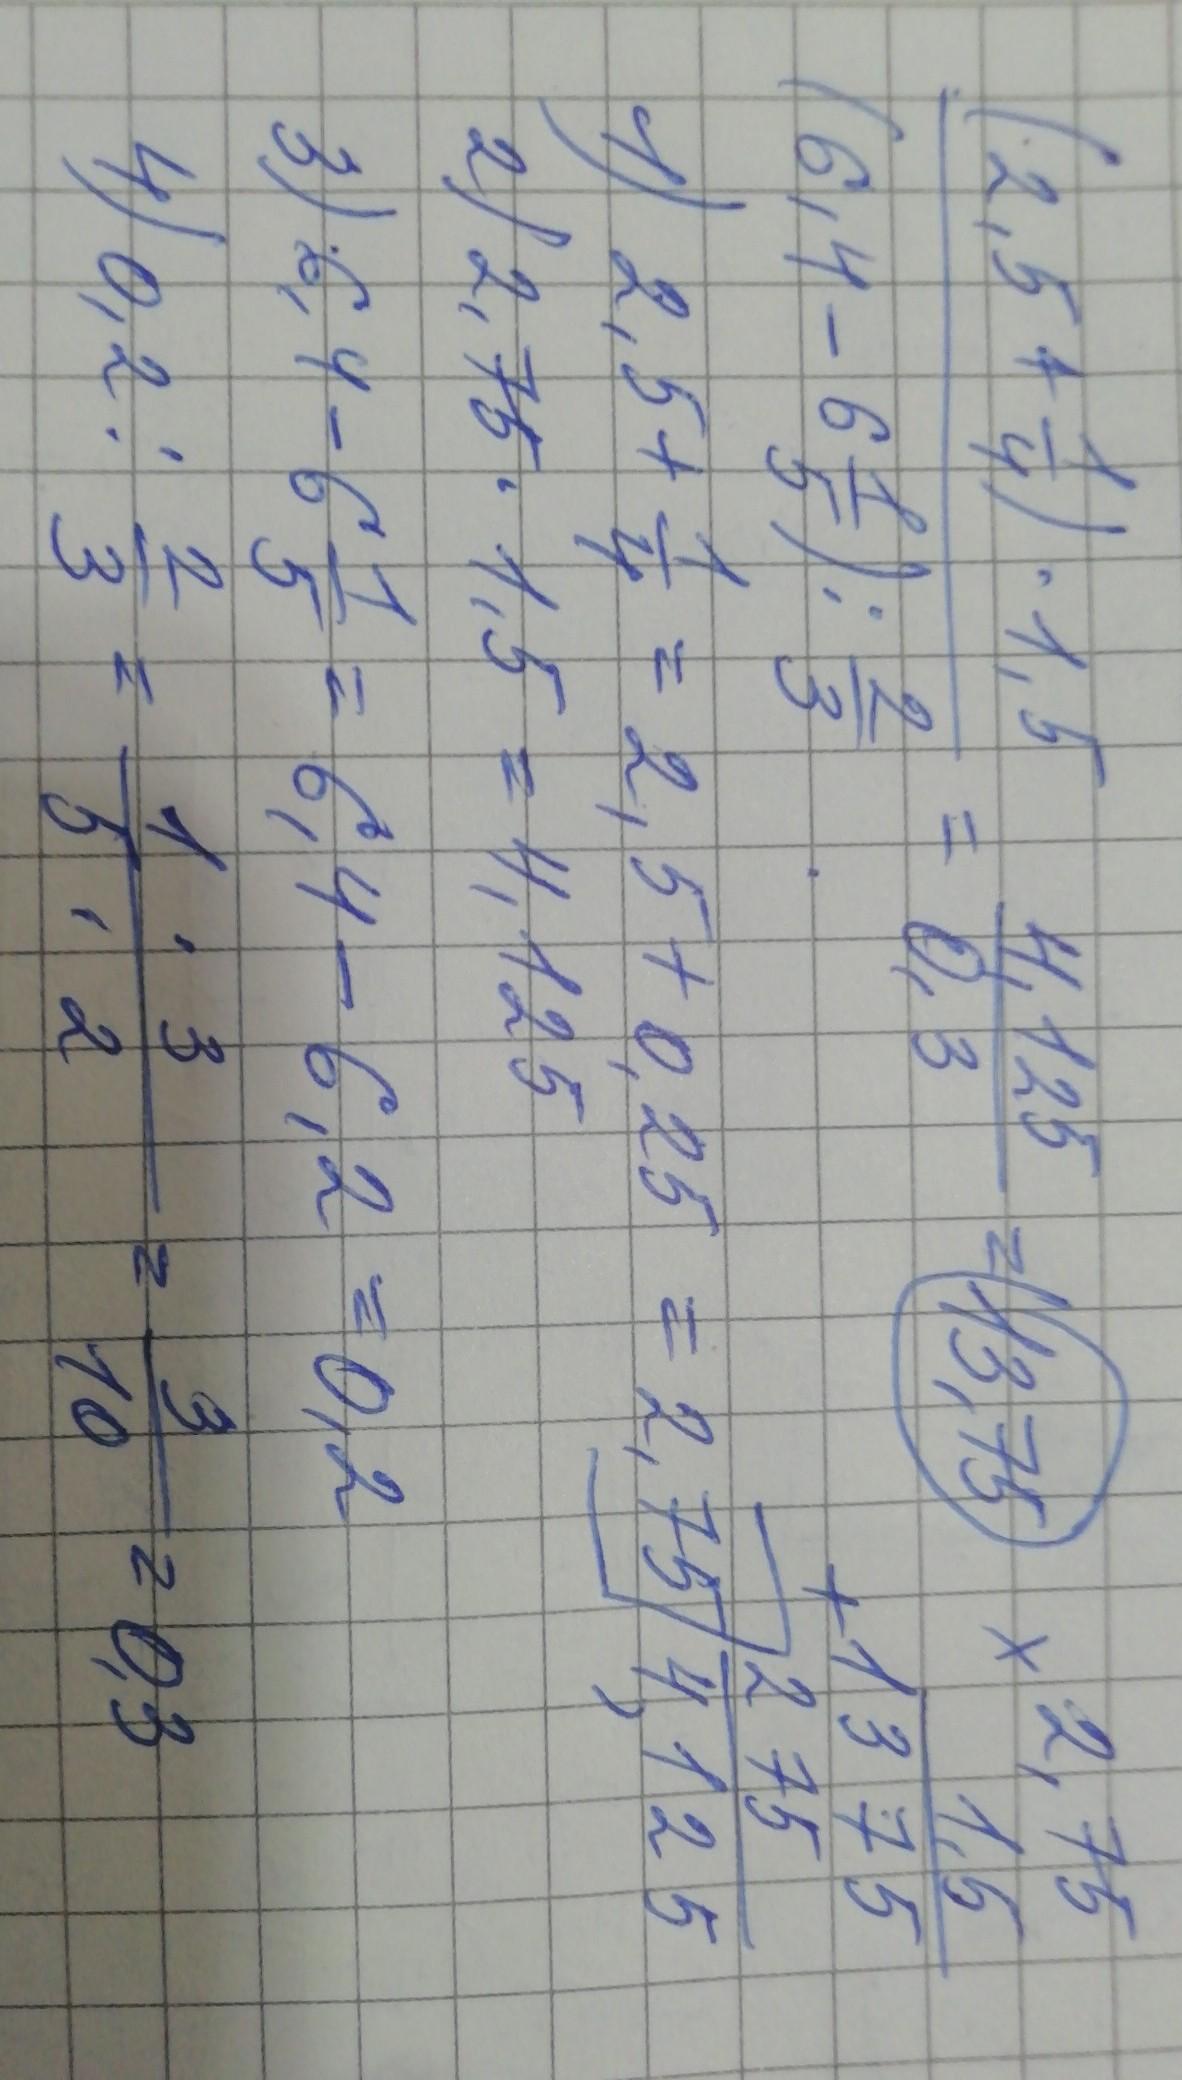 (2,5 + 1/4) · 1,5
(6,4 - 6 1/5) : 2/3 = 4,125 / 0,3 = 13,75
1) 2,5 + 1/4 = 2,5 + 0,25 = 2,75
2) 2,75 · 1,5 = 4,125
3) 6,4 - 6 1/5 = 6,4 - 6,2 = 0,2
4) 0,2 : 2/3 = 1 · 3 / 5 · 2 = 3/10 = 0,3
× 2,75
1,5
+ 1375
275
4,125